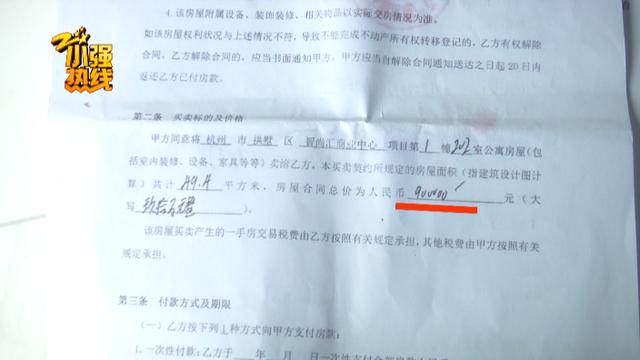 4.该房屋附属设备、装饰装修、相关物品以实际交房情况为准。
如该房屋权利状况与上述情况不符，导致不能完成不动产所有权转移登记的，乙方有权解除
合同，乙方解除合同的，应当书面通知甲方，甲方应当自解除合同通知送达之日起20日内
返还乙方已付房款。
小强热线
第二条 买卖标的及价格
甲方同意将 杭州 市 拱墅 区 智尚汇商业中心 项目第 1 幢 202 室公寓房屋(包
括室内装修、设备、家具等等)卖洽乙方，本买卖契约所规定的房屋面积（指建筑设计图计
算）共计 49.4 平方米，房屋合同总价为人民币 900000 元（大
写 ）。
该房屋买卖产生的一手房交易税费由乙方按照有关规定承担，其他税费由甲方按照有关
规定承担。
第三条 付款方式及期限
（一）乙方按下列 1 种方式向甲方支付房款：
1.一次性付款：乙方于 年 月 日一次性支付